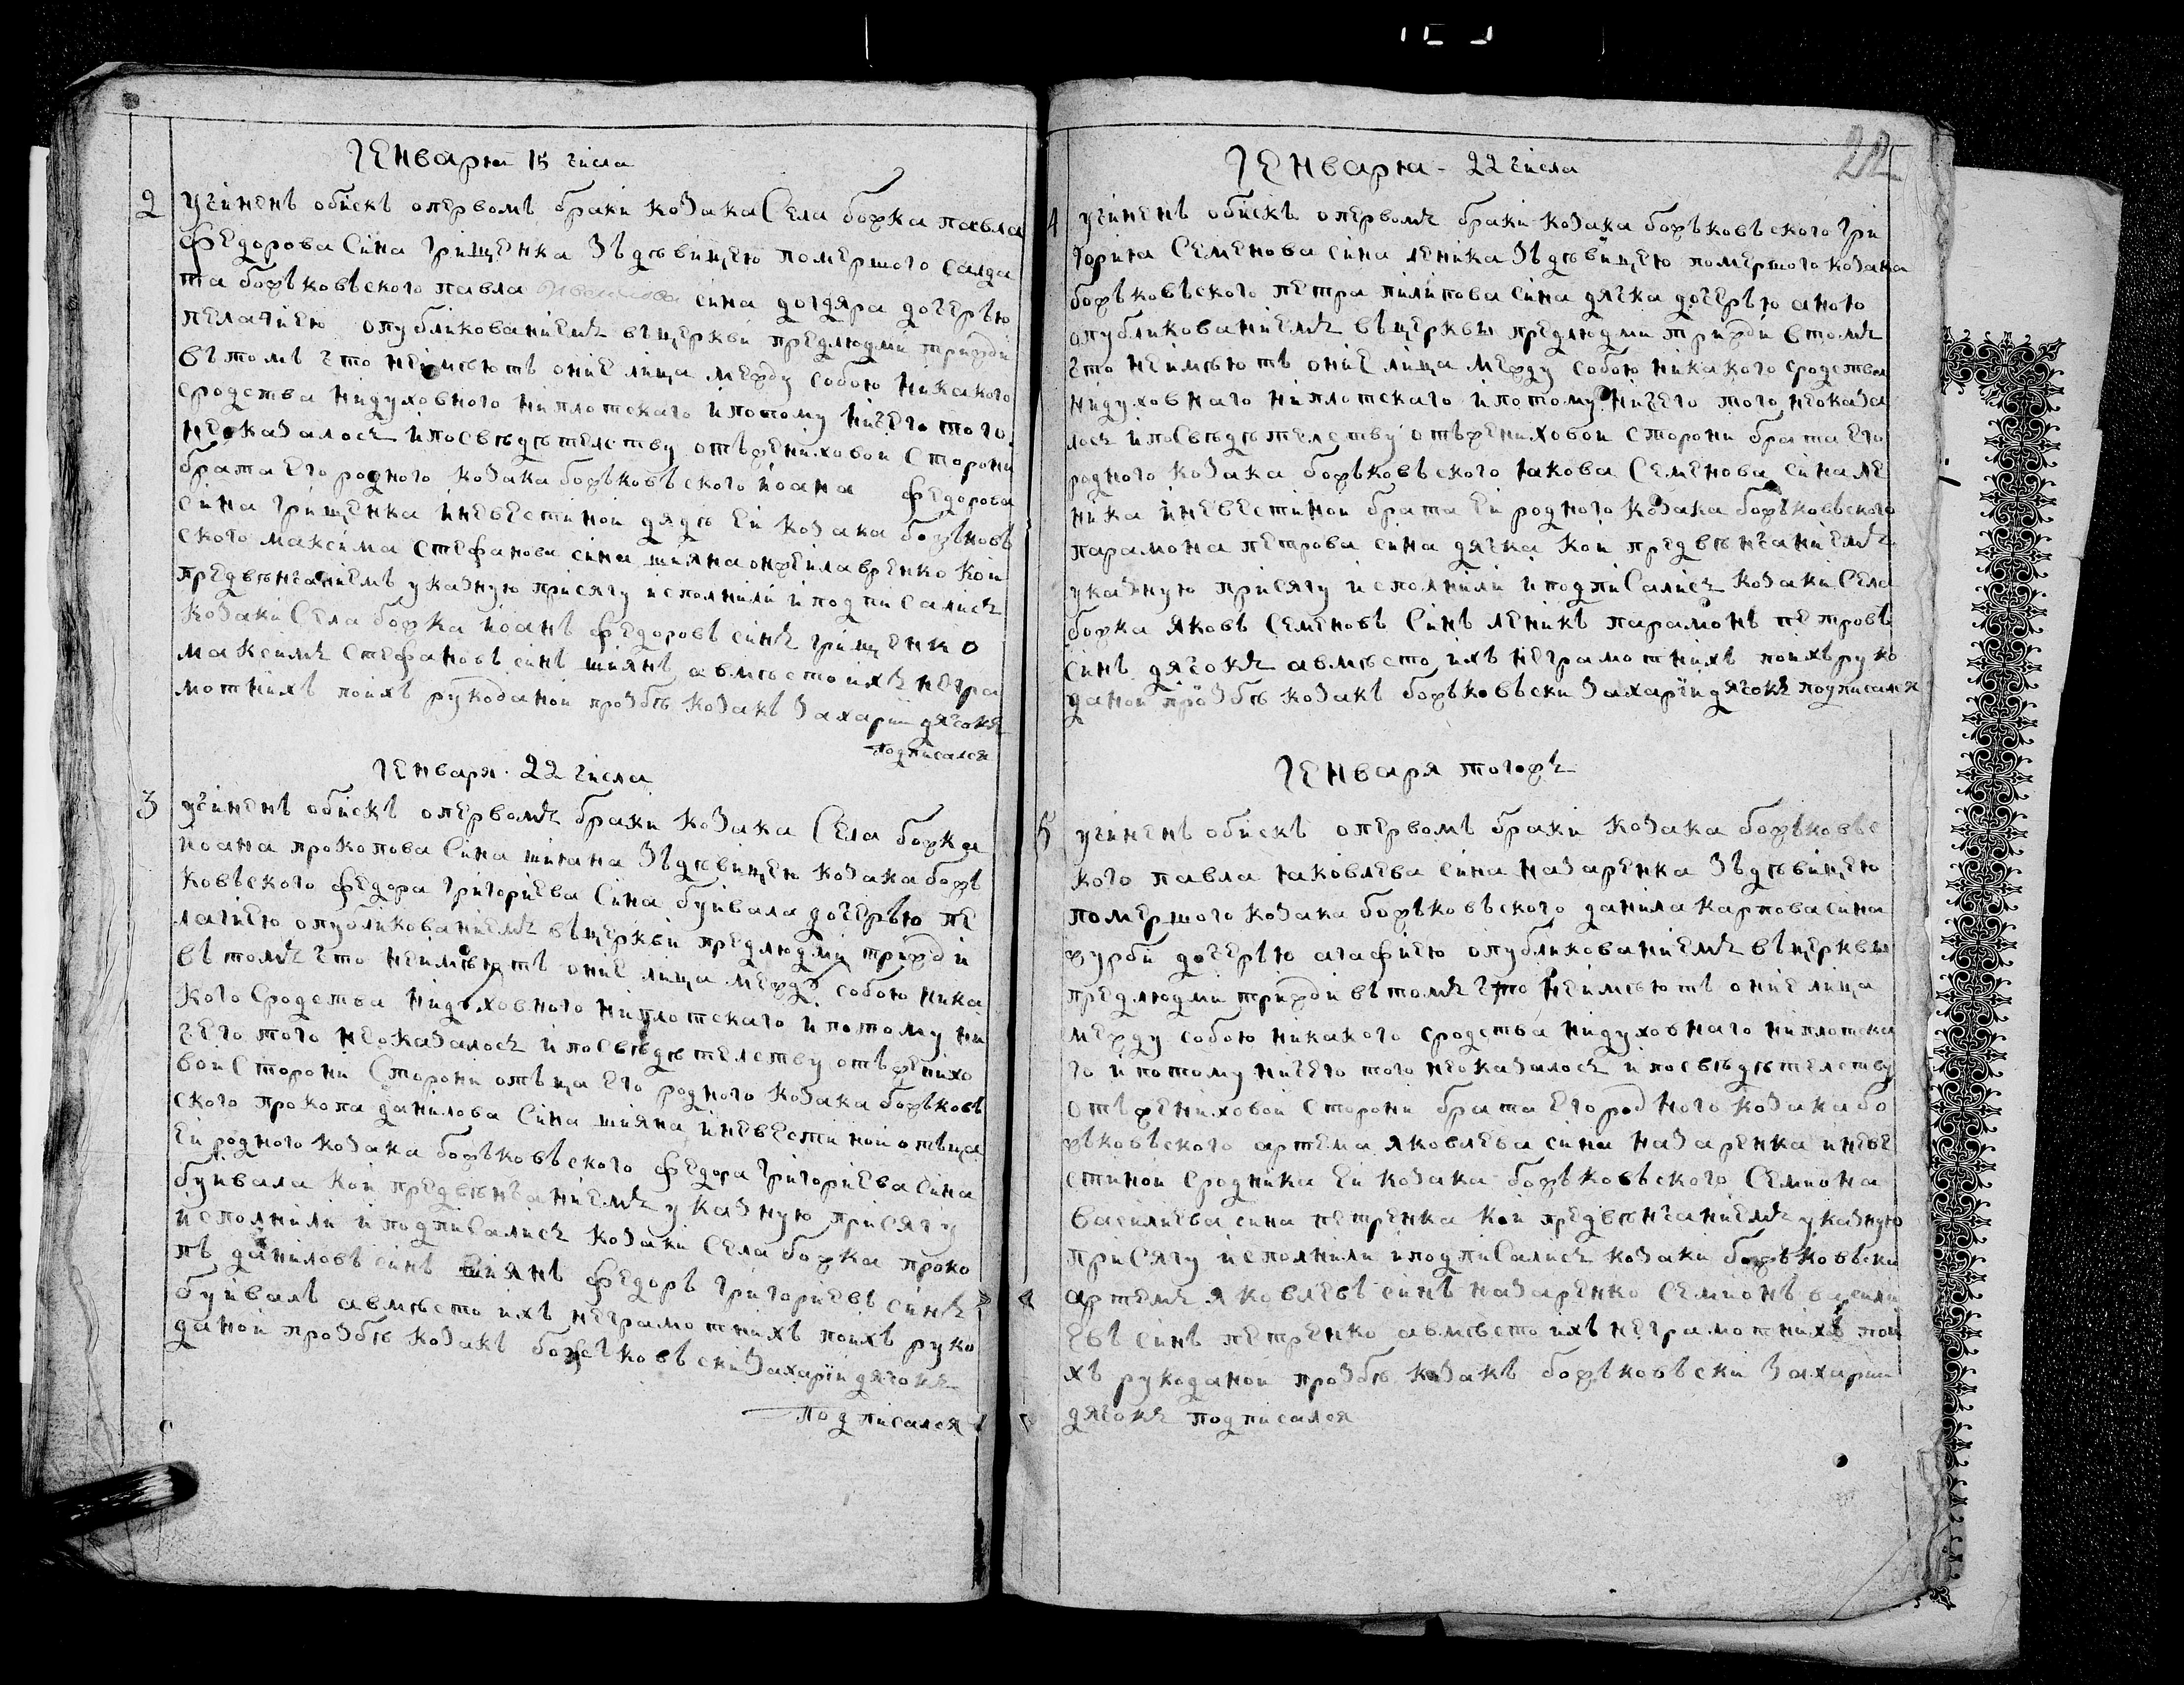 Генварꙗ 15 числа
2 Учиненъ обискъ опервомъ браки козака Села божка павла
федорова Сина грищенка Зъдѣвицею помершого салда
та божъковъского павла сина дочерѣю
пелагиею опубликованиемъ вцеркви предлюдми трижди
въ томъ что неимѣютъ оние лица между собою никакого
сродства нидуховного ниплотскаго ипотому ничего того
неоказалось ипосвѣдѣтелству отъжениховой Сторони
брата Его родного козака божъковъского иоана федорова
сина грищенка иневестиной дядѣ Ей козака божъковъ
ского максима стефанова сина шияна кои
предвѣнчаниемъ указную присягу исполнили иподписались
козаки Села божка иоанъ федоровъ синъ грищенко
максимъ стефановъ синъ шиянъ авмѣсто ихъ негра
мотнихъ поихъ рукоданой прозбѣ козакъ Захарий дячокъ
подписался
Генваря 22 числа
3 учиненъ обискъ опервомъ браки козака Села божка
иоана прокопова Сина шиꙗна Зъдѣвицею козака божъ
ковъского федора григориева Сина буивала дочерѣю пе
лагиею опубликованиемъ въцеркви предлюдми трижди
въ томъ что неимѣютъ оние лица между собою ника
кого Сродства нидуховного ниплотскаго ипотому ни
чего того неоказалось ипосвѣдѣтелству отъженихо
вой Сторони Сторони отъца Его родного козака божъковъ
ского прокопа данилова Сина шияна иневестиной отъца
Ей родного козака божъковъского федора григориева сина
буивала кои предвѣнчаниемъ указную присягу
исполнили иподписались козаки Села божка проко
пъ даниловъ синъ шиянъ федоръ григориевъ синъ
буивалъ авмѣсто ихъ неграмотнихъ поихъ руко
даной прозбѣ козакъ божъковъски Захарий дячокъ
подписался
22
Генварꙗ - 22 числа
4 учиненъ обискъ опервомъ браки козака божъковъского гри
гориꙗ Семенова сина леника Зъдѣвицею помершого козака
божъковъского петра пилипова сина дячка дочерѣю аною
опубликованиемъ въцерквы предлюдми трижди втомъ
что неимѣютъ оние лица между собою никакого сродства
нидуховнаго ниплотскаго ипотому ничего того неоказа
лось ипосвѣдѣтелству отъжениховой сторони брата Его
родного козака божъковъского ꙗкова Семенова сина ле
ника иневестиной брата Ей родного козака божъковъского
парамона петрова сина дячка кои предвѣнчаниемъ
указную присягу исполнили иподписались козаки Села
божка яковъ Семеновъ Синъ леникъ парамонъ петровъ
синъ дячокъ авмѣсто ихъ неграмотнихъ поихъ руко
даной прозбѣ козакъ божъковъски Захарий дячокъ подписался
Генваря тогожъ
5 учиненъ обискъ опервомъ браки козака божъковъс
кого павла ꙗковлева сина назаренка Зъдѣвицею
помершого козака божъковъского данила карпова сина
журби дочерѣю агафиею опубликованиемъ въцерквы
предлюдми трижди въ томъ что неимѣютъ оние лица
между собою никакого сродства нидуховнаго ниплотска
го ипотому ничего того неоказалось ипосвѣдѣтелству
отъжениховой сторони брата Его родного козака бо
жъковъского артема яковлева сина назаренка иневе
стиной Сродника Ей козака божъковъского Семиона
василиева сина петренка кои предвѣнчаниемъ указную
присягу исполнили иподписались козаки божъковъски
артемъ яковлевъ синъ назаренко Семионъ васили
евъ синъ петренко авмѣсто ихъ неграмотнихъ пои
хъ рукоданой прозбѣ козакъ божъковъски Захарии
дячокъ подписался